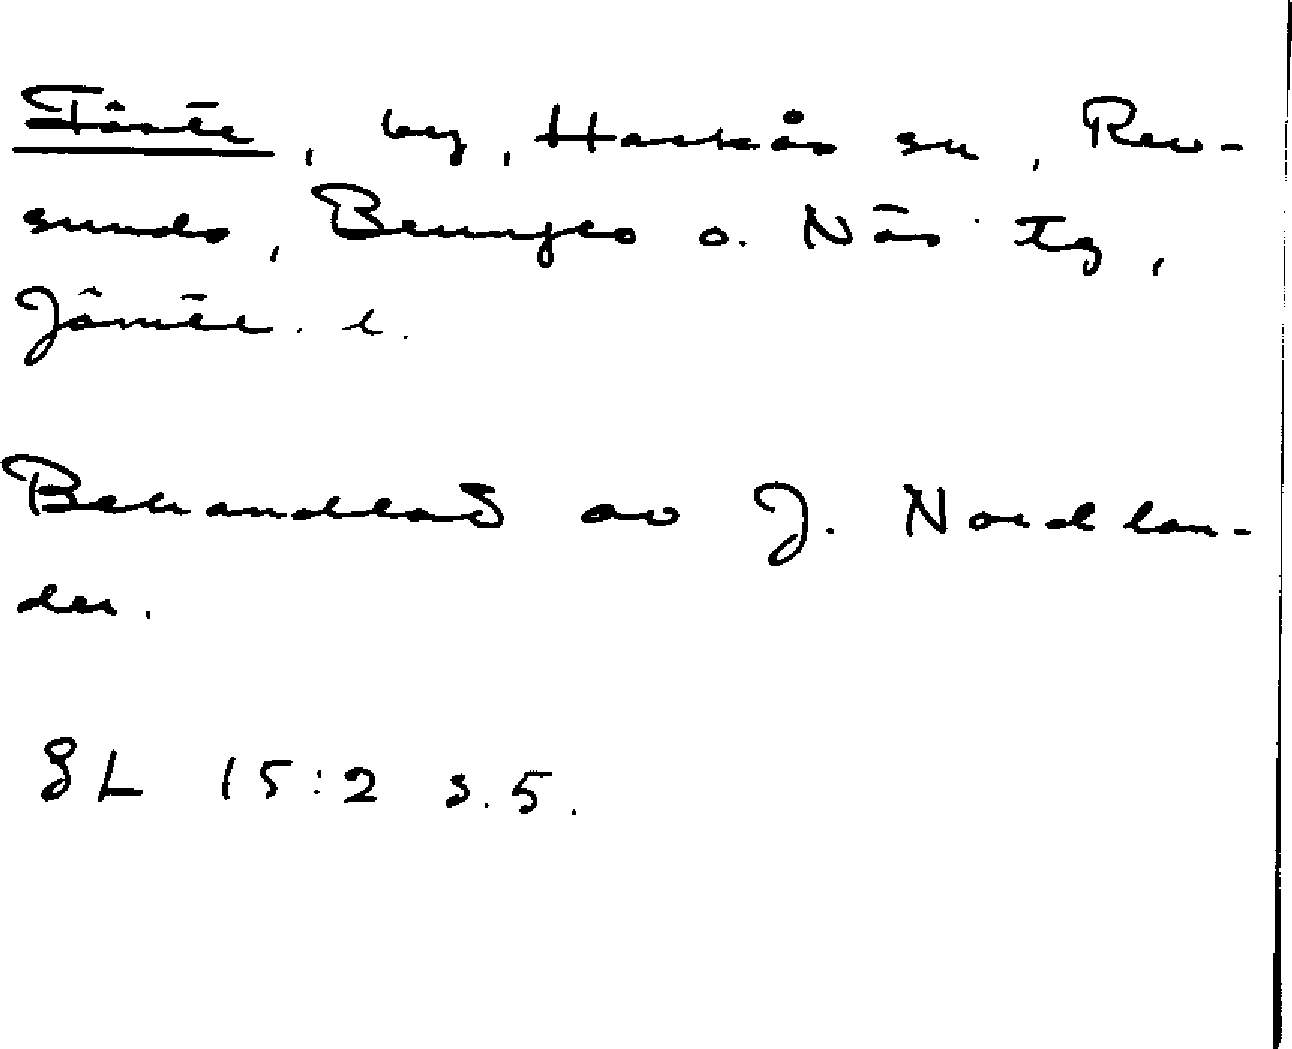 Fäste, by, Hackås sn, Rev-
sunds, Brunflo o. Näs tg,
Jämtl. l.
Behandlad av J. Nordlan-
der.
SL 15:2 s. 5.